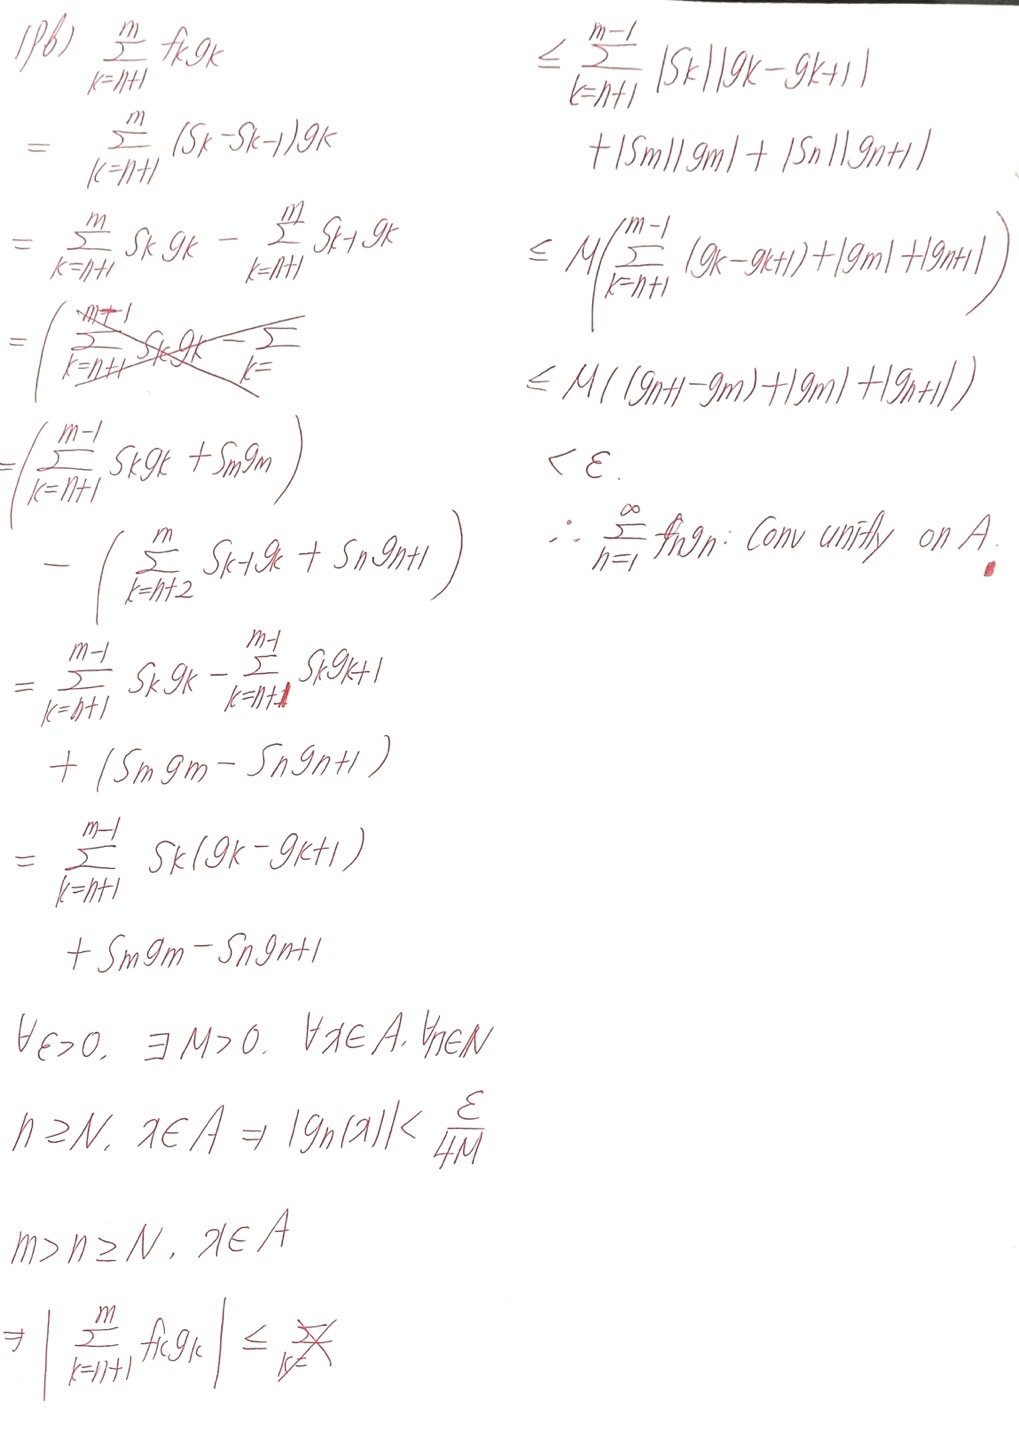 (pf) \sum_{k=n+1}^{m} f_k g_k
= \sum_{k=n+1}^{m} (S_k - S_{k-1}) g_k
= \sum_{k=n+1}^{m} S_k g_k - \sum_{k=n+1}^{m} S_{k-1} g_k
= ( \sum_{k=n+1}^{m+1} S_k g_k - \sum_{k=}
= ( \sum_{k=n+1}^{m-1} S_k g_k + S_m g_m )
- ( \sum_{k=n+2}^{m} S_{k-1} g_k + S_n g_{n+1} )
= \sum_{k=n+1}^{m-1} S_k g_k - \sum_{k=n+1}^{m-1} S_k g_{k+1}
+ (S_m g_m - S_n g_{n+1})
= \sum_{k=n+1}^{m-1} S_k (g_k - g_{k+1})
+ S_m g_m - S_n g_{n+1}
∀ε>0. ∃M>0. ∀x∈A. ∀n∈N
n ≥ N, x∈A ⇒ |g_n(x)| < \frac{ε}{4M}
m > n ≥ N, x∈A
⇒ | \sum_{k=n+1}^{m} f_k g_k | ≤ \sum_{k=}
≤ \sum_{k=n+1}^{m-1} |S_k||g_k - g_{k+1}|
+ |S_m||g_m| + |S_n||g_{n+1}|
≤ M( \sum_{k=n+1}^{m-1} (g_k - g_{k+1}) + |g_m| + |g_{n+1}| )
≤ M( (g_{n+1} - g_m) + |g_m| + |g_{n+1}| )
< ε.
∴ \sum_{n=1}^{∞} f_n g_n : Conv unifly on A.